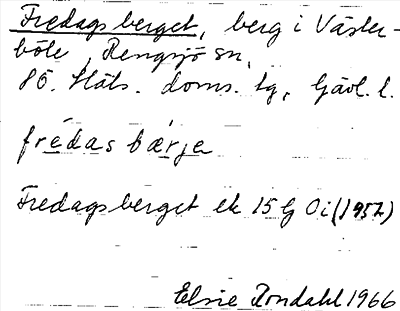 Fredagsberget, berg i Väster-
böle, Rengsjö sn,
SÖ. Häls. doms. tg, Gävl. l.
frédas bærje
Fredagsberget ek 15 G Oi (1957)
Elsie Rondahl 1966